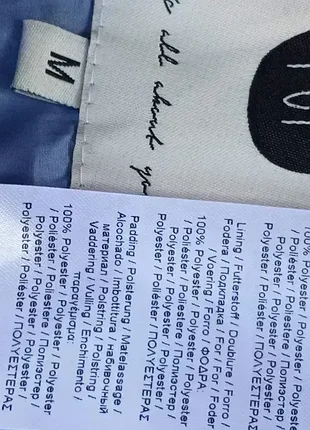 M
all about you
Poliestere / Полиэстер /
Polyester / Polyester /
Polyester / Poliéster / ΠΟΛΥΕΣΤΕΡΑΣ
Lining / Futterstoff / Doublure / Forro /
Fodera / Подкладка / For / For / Foder
/ Voering / Forro / ΦΟΔΡΑ:
100% Polyester / Polyester / Polyester
/ Poliéster / Poliestere / Полиэстер /
Polyester / Polyester / Polyester /
Polyester / Poliéster / ΠΟΛΥΕΣΤΕΡΑΣ
Padding / Polsterung / Matelassage /
Alcochado / Imbottitura / набивочный
материал / Polstring / Polstring /
Vaddering / Vulling / Enchimento /
παραγέμισμα:
100% Polyester / Polyester / Polyester
/ Poliéster / Poliestere / Полиэстер /
Polyester / Polyester / Polyester /
Polyester / Poliéster / ΠΟΛΥΕΣΤΕΡΑΣ